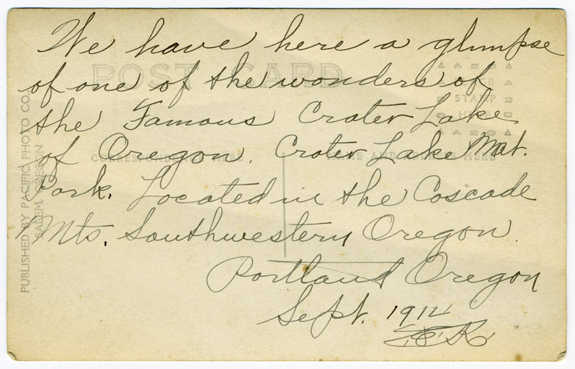 We have here a glimpse
of one of the wonders of
the Famous Crater Lake
of Oregon. Crater Lake Nat.
Park. Located in the Cascade
Mts. Southwestern Oregon.
Portland Oregon
Sept. 1914
POST CARD
PLACE
STAMP
HERE
PUBLISHED BY PACIFIC PHOTO CO.
SALEM, OREGON